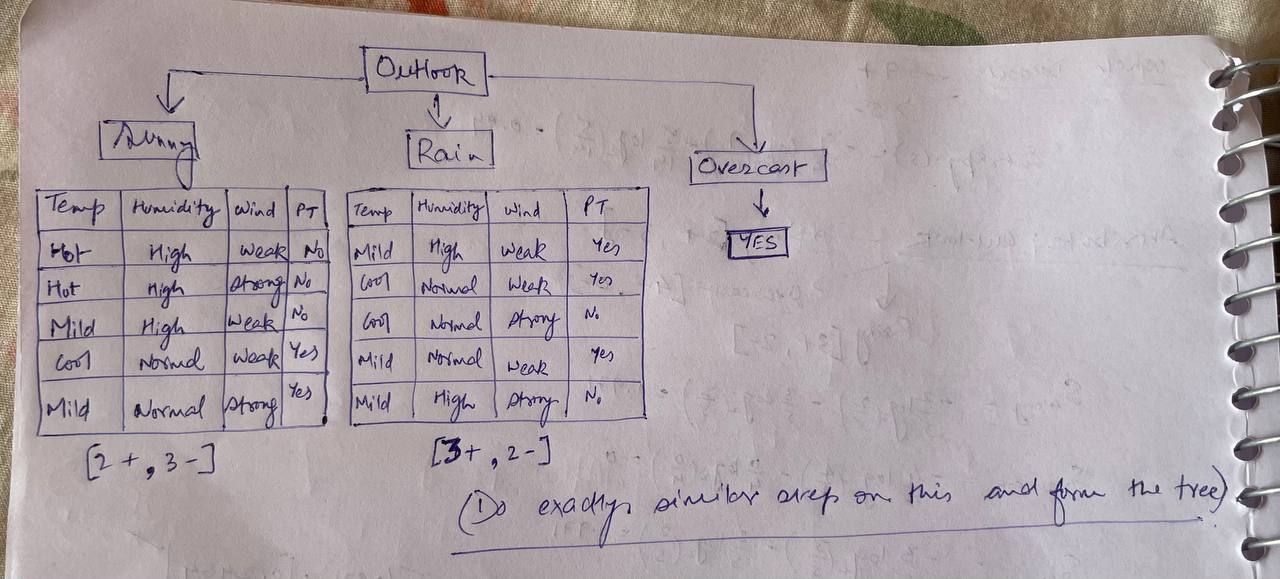 Outlook
Sunny
Rain
Overcast
YES
Temp Humidity Wind PT
Hot High Weak No
Hot High Strong No
Mild High Weak No
Cool Normal Weak Yes
Mild Normal Strong Yes
[2+, 3-]
Temp Humidity Wind PT
Mild High Weak Yes
Cool Normal Weak Yes
Cool Normal Strong No
Mild Normal Weak Yes
Mild High Strong No
[3+, 2-]
(Do exactly similar step on this and form the tree)